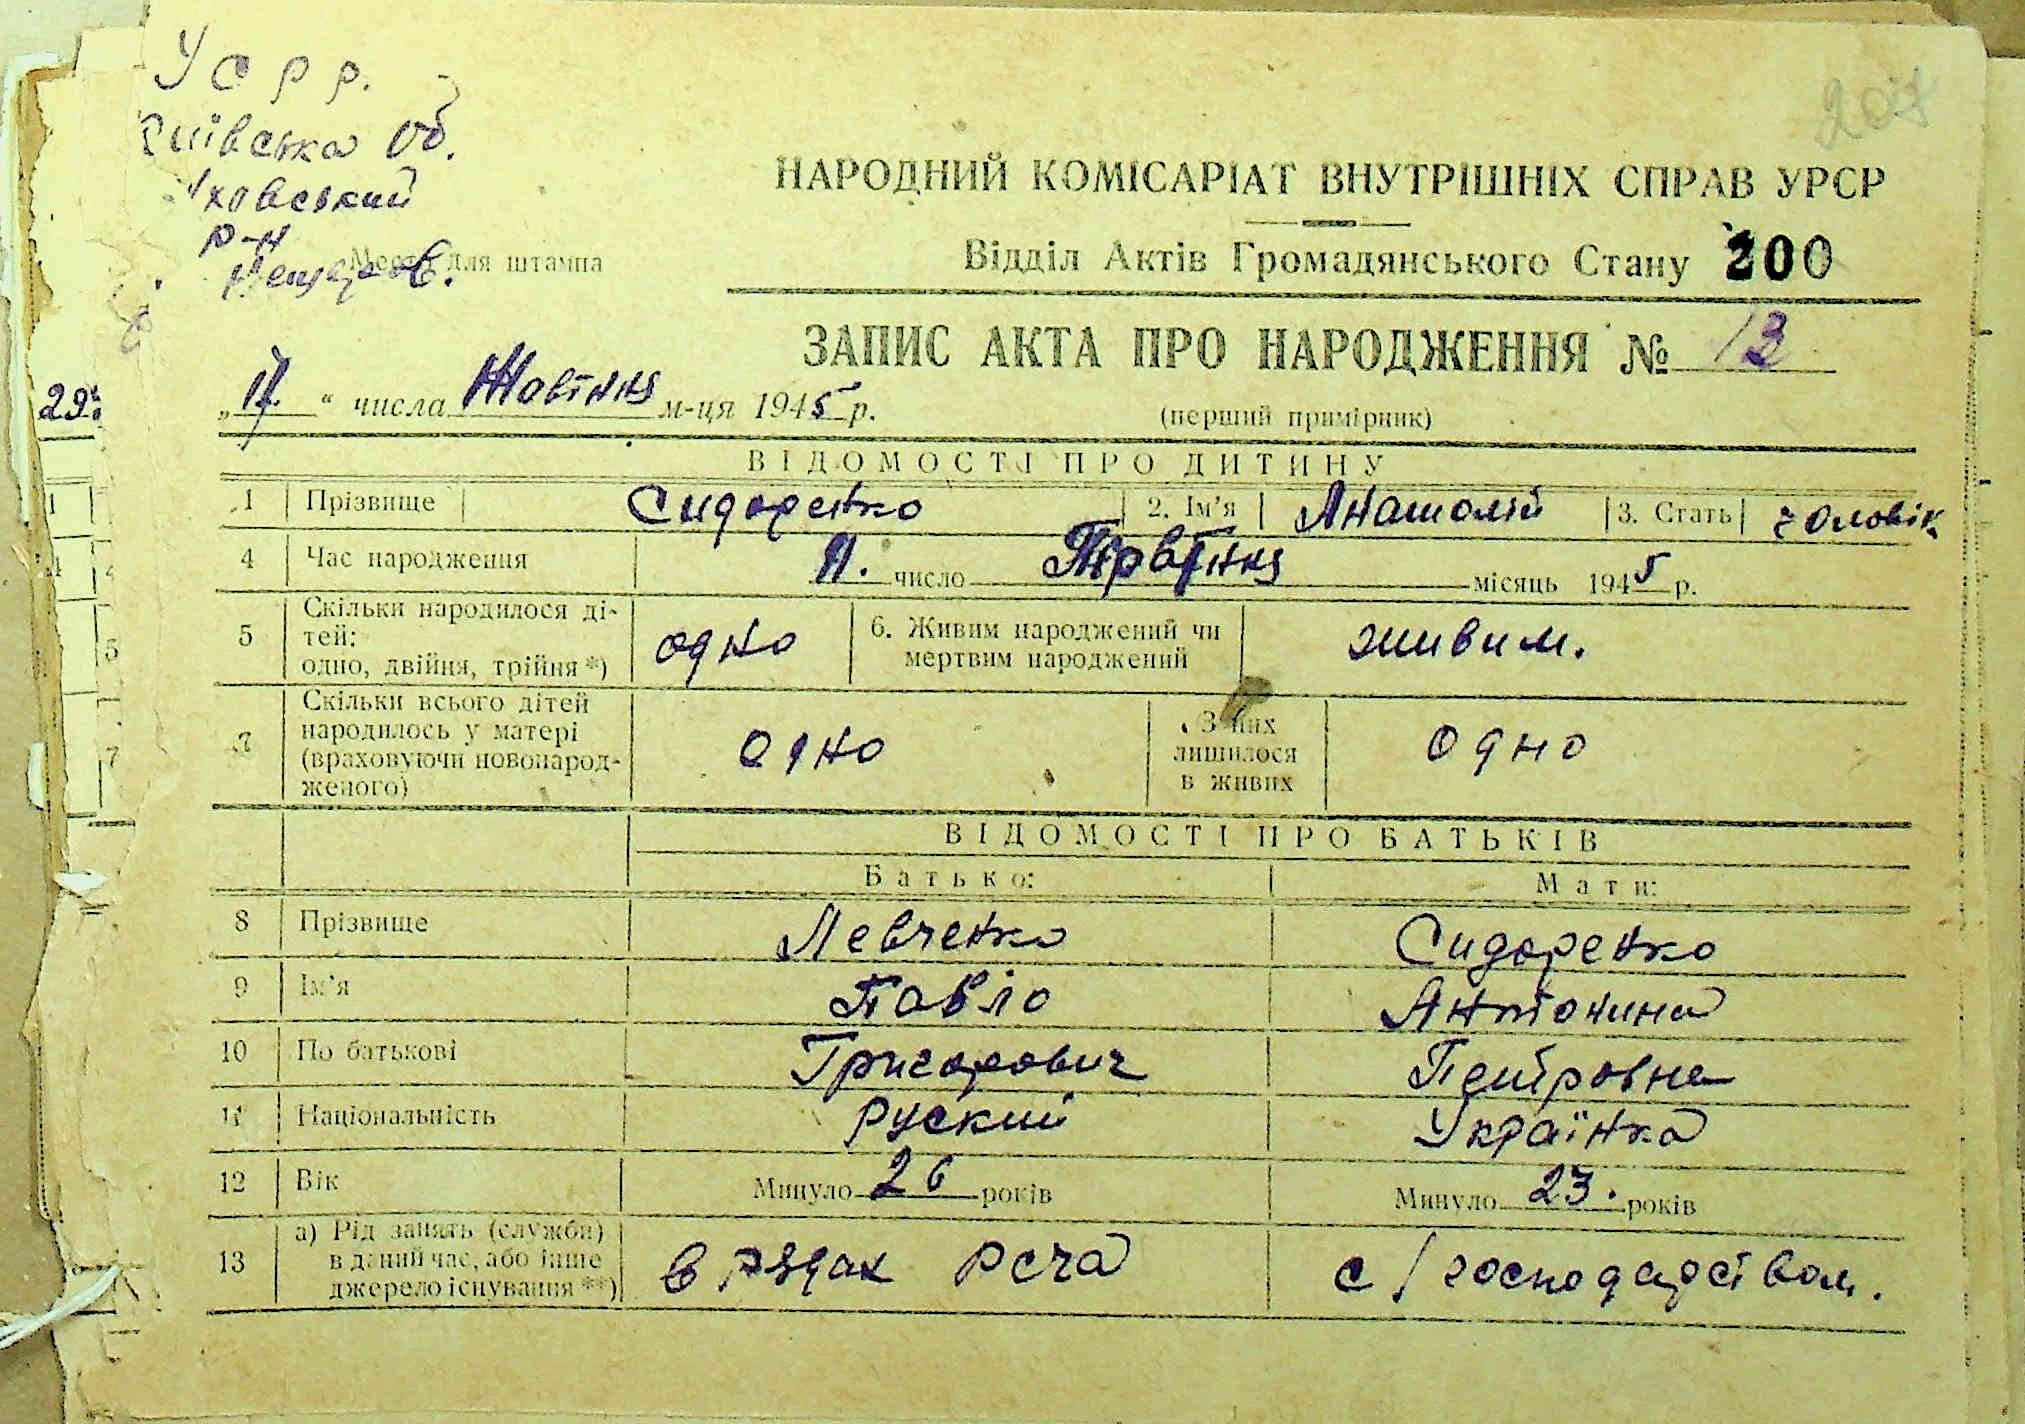 УСРР.
Київська Об.
р-н
Место для штампа
207
НАРОДНИЙ КОМІСАРІАТ ВНУТРІШНІХ СПРАВ УРСР
Відділ Актів Громадянського Стану 200
ЗАПИС АКТА ПРО НАРОДЖЕННЯ № 13
(перший примірник)
„17.“ числа Жовтня м-ця 1945 р.
29
ВІДОМОСТІ ПРО ДИТИНУ
1 Прізвище Сидоренко 2. Ім’я Анатолій 3. Стать чоловік
4 Час народження число Травня місяць 1945 р.
5 Скільки народилося ді-
тей:
одно, двійня, трійня *) одно 6. Живим народжений чи
мертвим народжений живим.
7 Скільки всього дітей
народилось у матері
(враховуючи новонарод-
женого) одно З них
лишилося
в живих одно
ВІДОМОСТІ ПРО БАТЬКІВ
Батько: Мати:
8 Прізвище Левченко Сидоренко
9 Ім’я Павло Антонина
10 По батькові Григорович Петровна
11 Національність Руский Українка
12 Вік Минуло 26 років Минуло 23. років
13 а) Рід занять (служби)
в даний час, або інше
джерело існування **) в рядах РСЧА с/господарством.